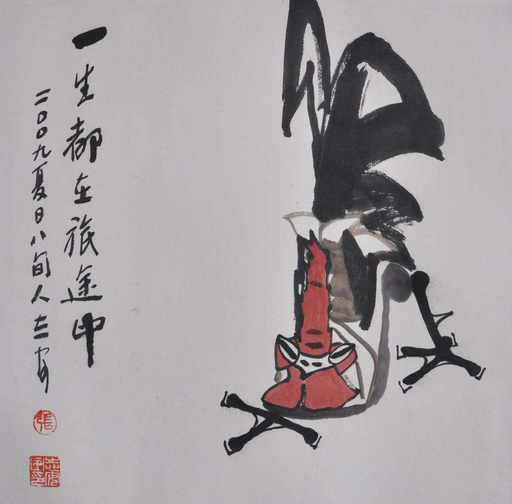 一生都在旅途中
二〇〇九夏日八旬人
張